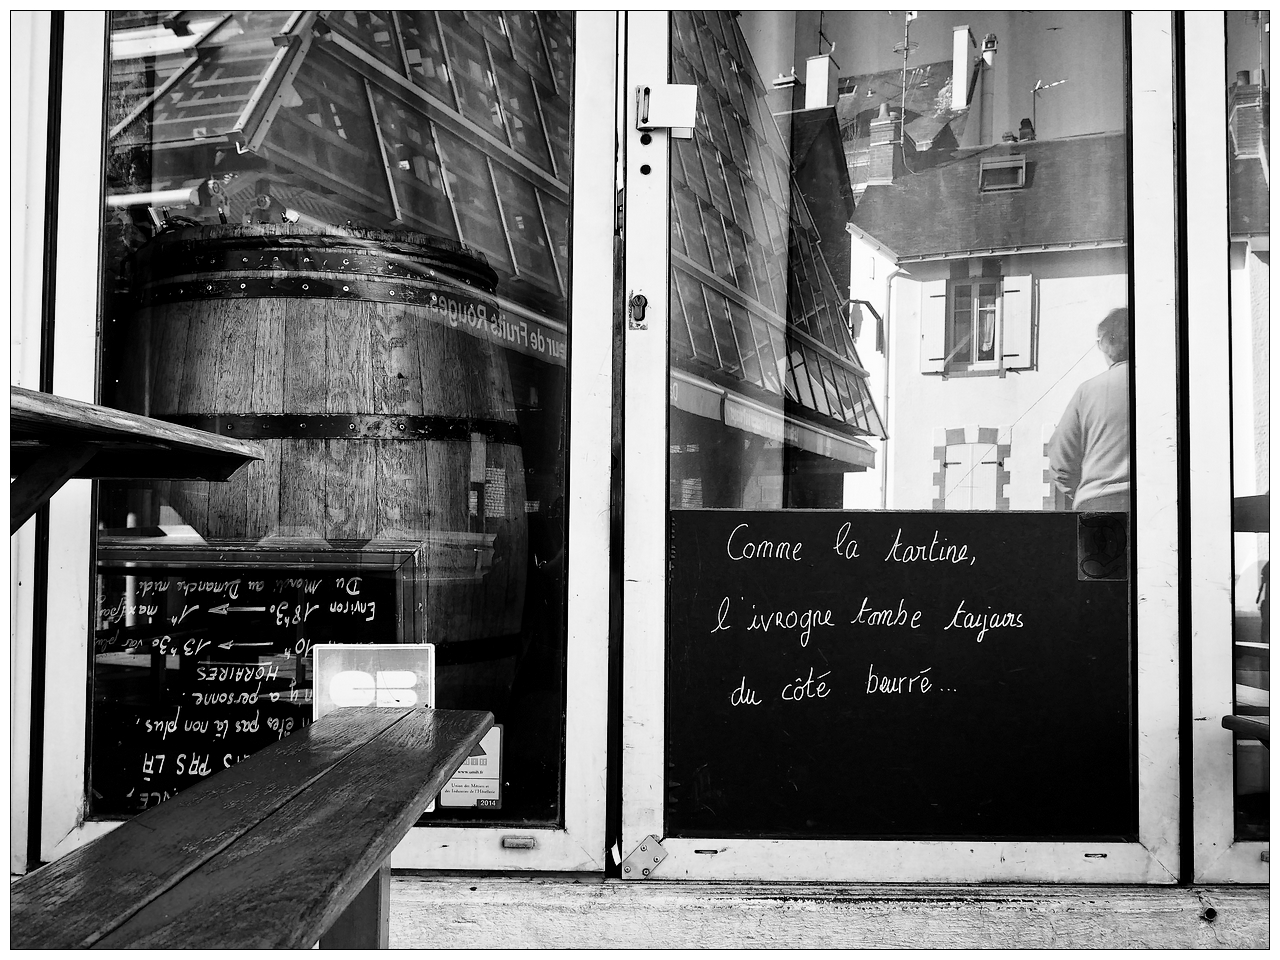 PAS LÀ
êtes pas là non plus,
y a personne.
HORAIRES
10h → 13h30 voir plus
Environ 18h30 → 1h max
Du Mardi au Dimanche midi
de Fruits Rouges
CB
www.umih.fr
Union des Métiers et
des Industries de l'Hôtellerie
2014
Comme la tartine,
l'ivrogne tombe toujours
du côté beurré...